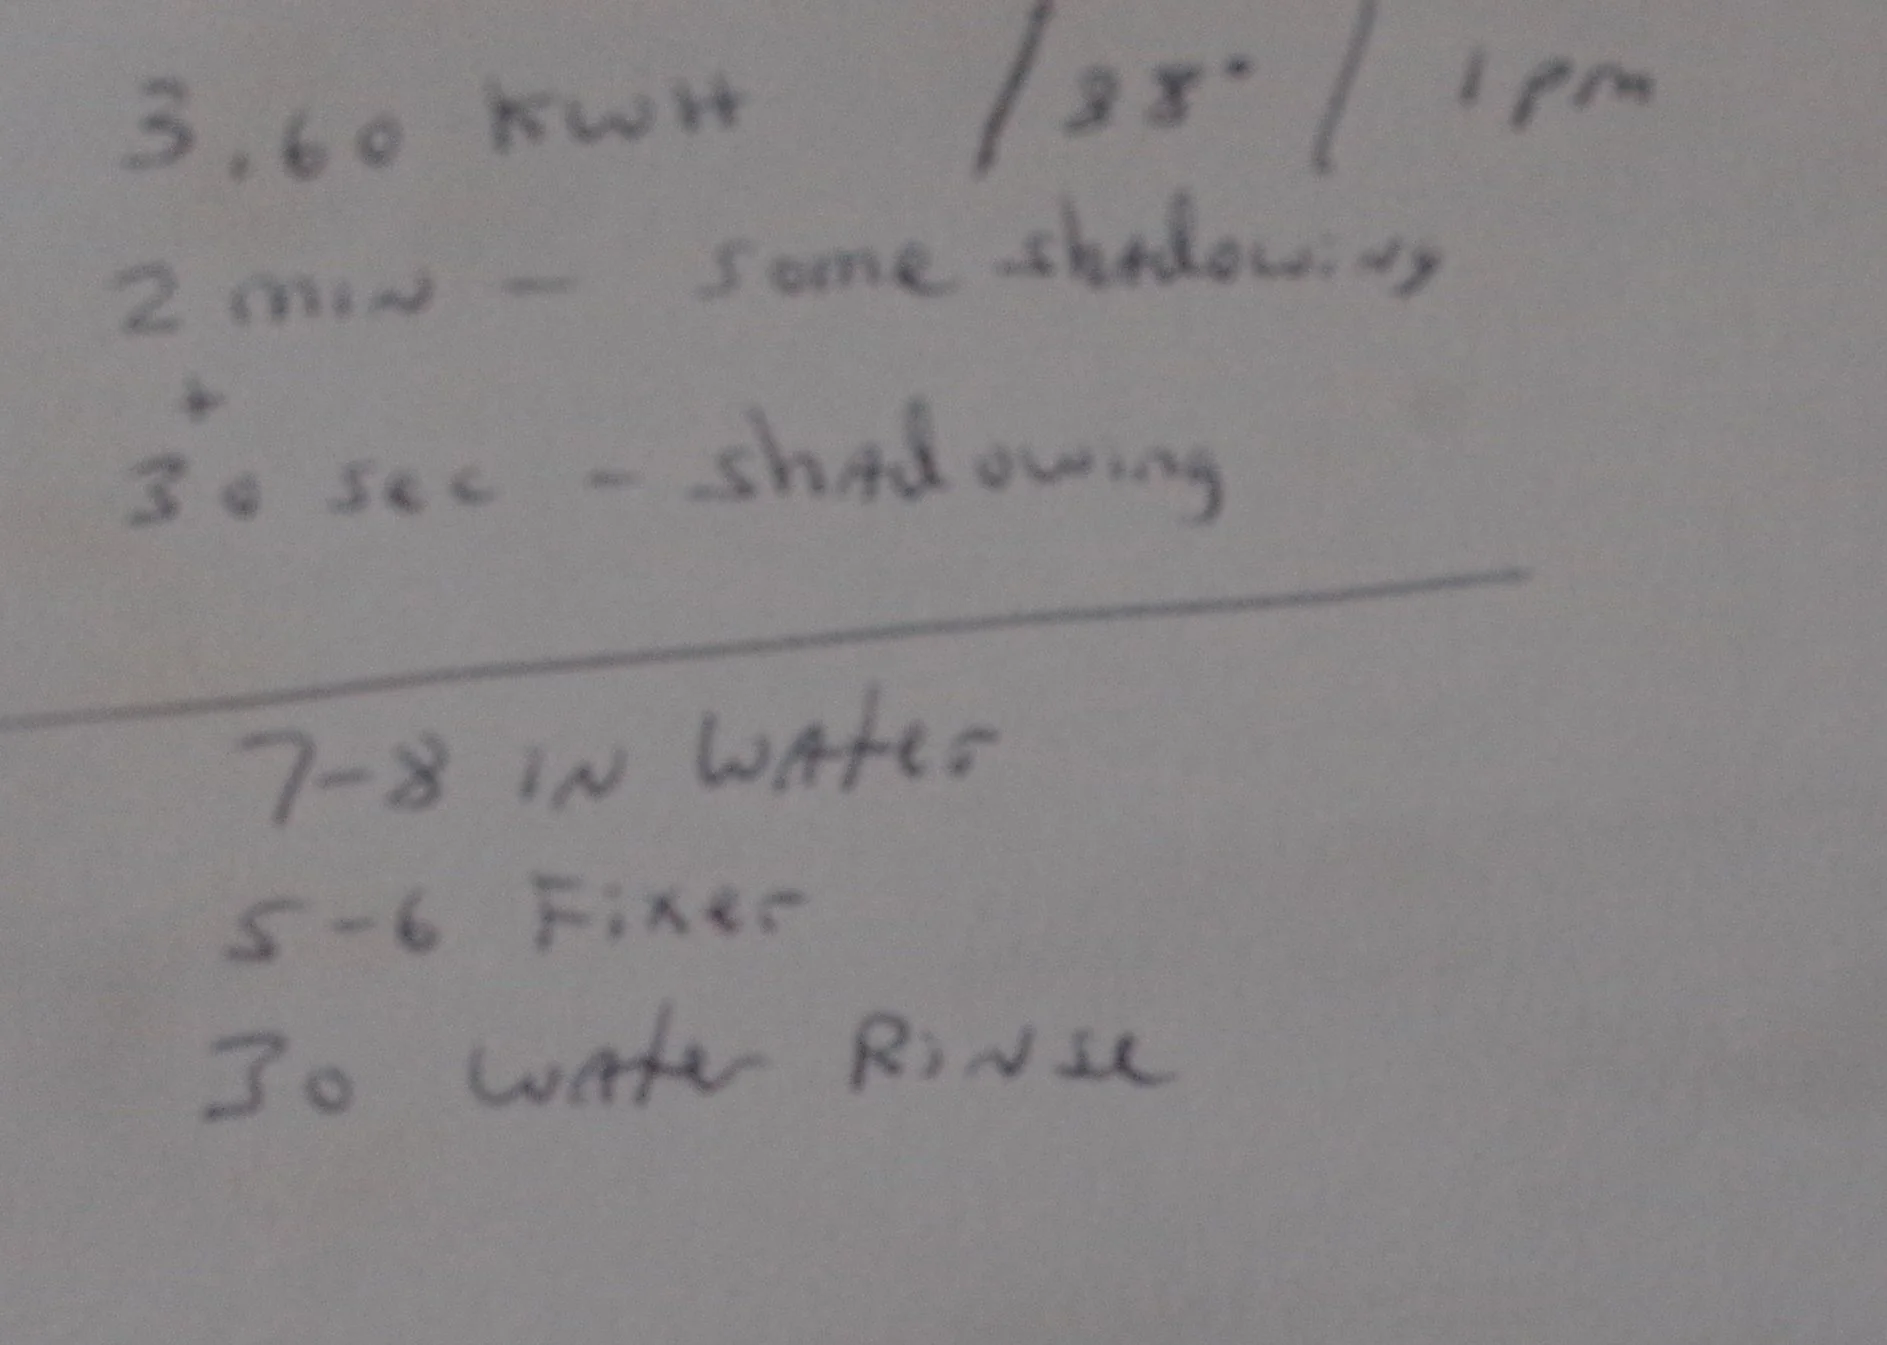 3.60 KWH / 38° / 1 pm
2 min - some shadowing
+
30 sec - shadowing
7-8 in water
5-6 Fixer
30 water Rinse